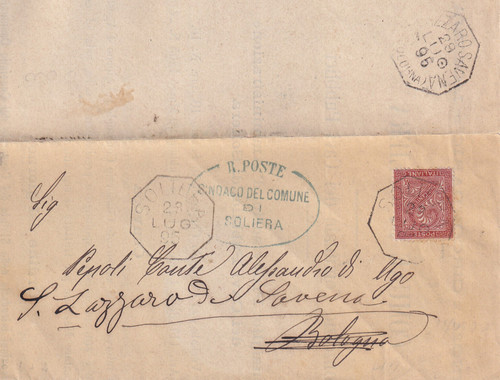 ZZARO SAVENA
29
LUG
96
R. POSTE
SINDACO DEL COMUNE
DI
SOLIERA
SOLIERA
28
LUG
Sig
Pepoli Conte Alessandro di Ugo
S. Lazzaro di Savena
Bologna